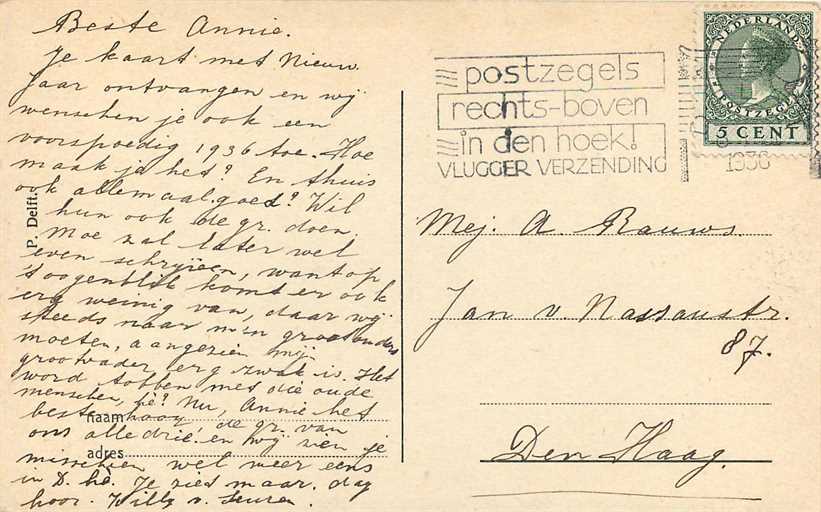 Beste Annie.
Je kaart met Nieuw.
Jaar ontvangen en wij
wenschen je ook een
voorspoedig 1936 toe. Hoe
maak je het? En thuis
ook allemaal goed? Wil
hun ook de gr. doen.
Moe zal later wel
even schrijven, want op
't oogenblik komt er ook
erg weinig van, daar wij
steeds naar m'n grootouders
moeten, aangezien mijn
grootvader erg zwak is. Het
word tobben met die oude
menschen, hè? Nu, Annie het
beste hoor, de gr. van
ons alle drie en wij zien je
misschien wel weer eens
in D. hè. Je ziet maar. dag
hoor. Willy v.
P. Delft.
naam
adres
postzegels
rechts-boven
in den hoek!
VLUGGER VERZENDING
1936
NEDERLAND
POSTZEGEL
5 CENT
Mej. A. Rauws.
Jan v. Nassaustr.
87.
Den Haag.